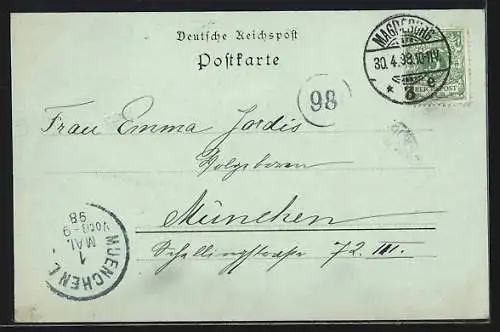 Deutsche Reichspost
Postkarte
MAGDEBURG
30.4.98.10-11V.
* 8 c
98
Frau Emma Jordis
München
Schellingstraße 72 III.
MUENCHEN
1
MAI.
Vor.8-9
98